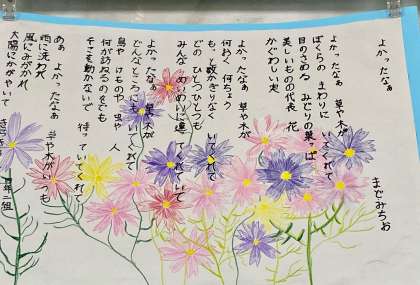 よかったなあ
まどみちお
よかったなあ 草や木が
ぼくらの まわりに いてくれて
目のさめる みどりの葉っぱ
美しいものの代表 花
かぐわしい実
よかったなあ 草や木が
何おく 何ちょう
もっと数かぎりなく いてくれて
どの ひとつひとつも
みんな めいめいに違っていてくれて
よかったなあ 草や木が
どんなところにも いてくれて
鳥や けものや 虫や 人
何が訪ねるのをでも
そこを動かないで 待っていてくれて
ああ よかったなあ 草や木がいつも
雨に洗われ
風にみがかれ
太陽にかがやいて きらきらと
四年二組